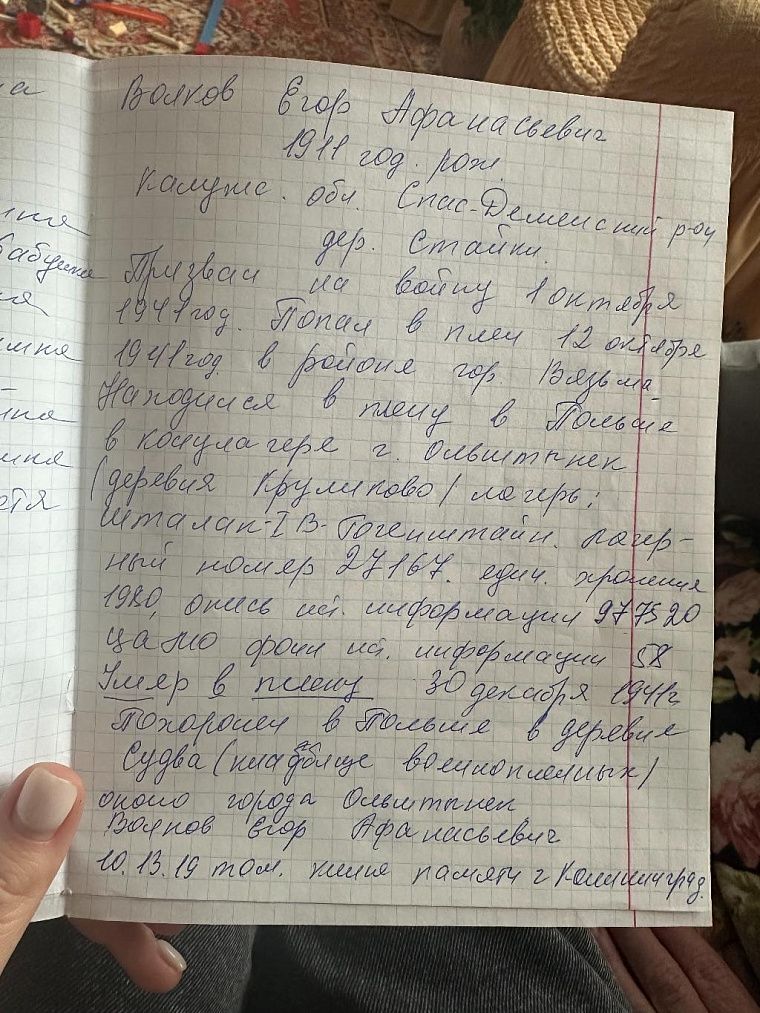 Волков Егор Афанасьевич
1911 год. рож.
Калужс. обл. Спас-Деменский р-он
дер. Стайки.
Призван на войну 1 октября
1941 год. Попал в плен 12 октября
1941 год. в районе гор. Вязьма.
Находился в плену в Польше
в концлагере г. Ольштынек
(деревня Круликово) лагерь:
шталаг-I B-Гогенштайн. лагер-
ный номер 27167. един. хронения
1980, опись ист. информации 977520
ЦАМО фонд ист. информации 58
Умер в плену 30 декабря 1941г.
Похоронен в Польше в деревне
Судва (кладбище военнопленных)
около города Ольштынек
Волков Егор Афанасьевич
10. 13. 19 том. книга памяти г Калининград.